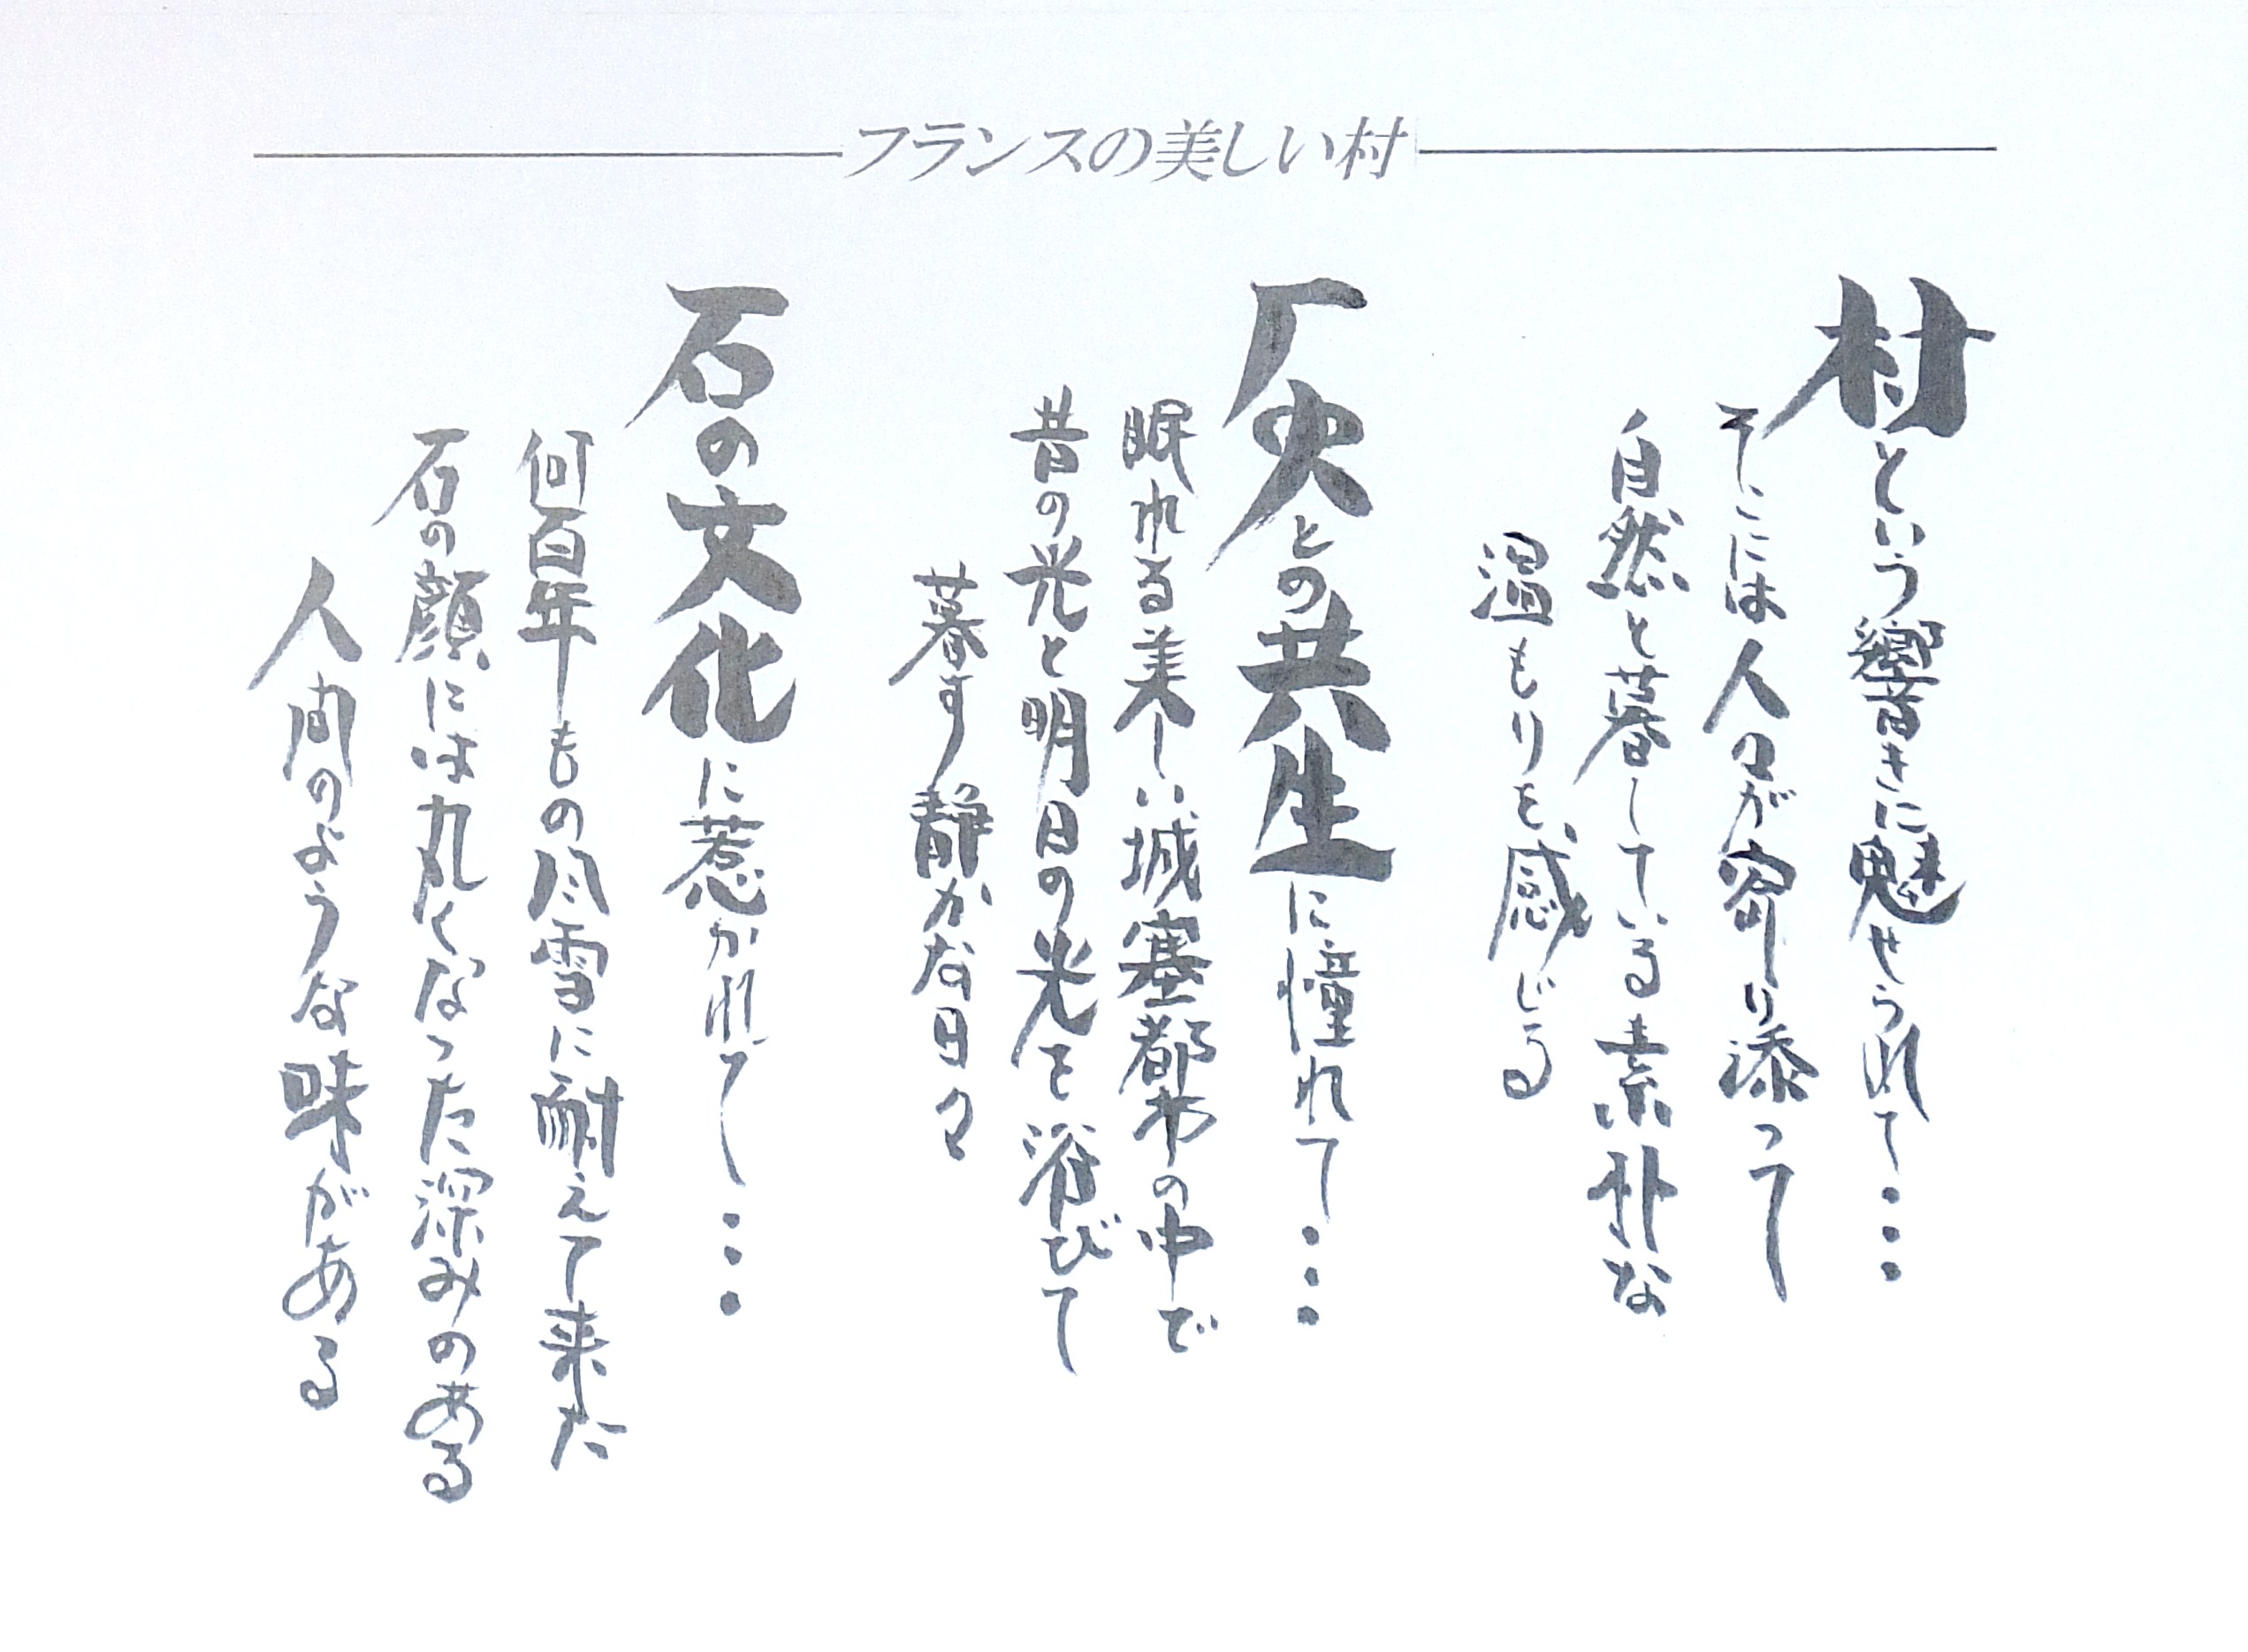 フランスの美しい村
村という響きに魅せられて・・・
そこには人々が寄り添って
自然と暮している素朴な
温もりを感じる
厂史との共生に憧れて・・・
眠れる美しい城塞都市の中で
昔の光と明日の光を浴びて
暮す静かな日々
石の文化に惹かれて・・・
何百年もの風雪に耐えて来た
石の顔には丸くなった深みのある
人間のような味がある